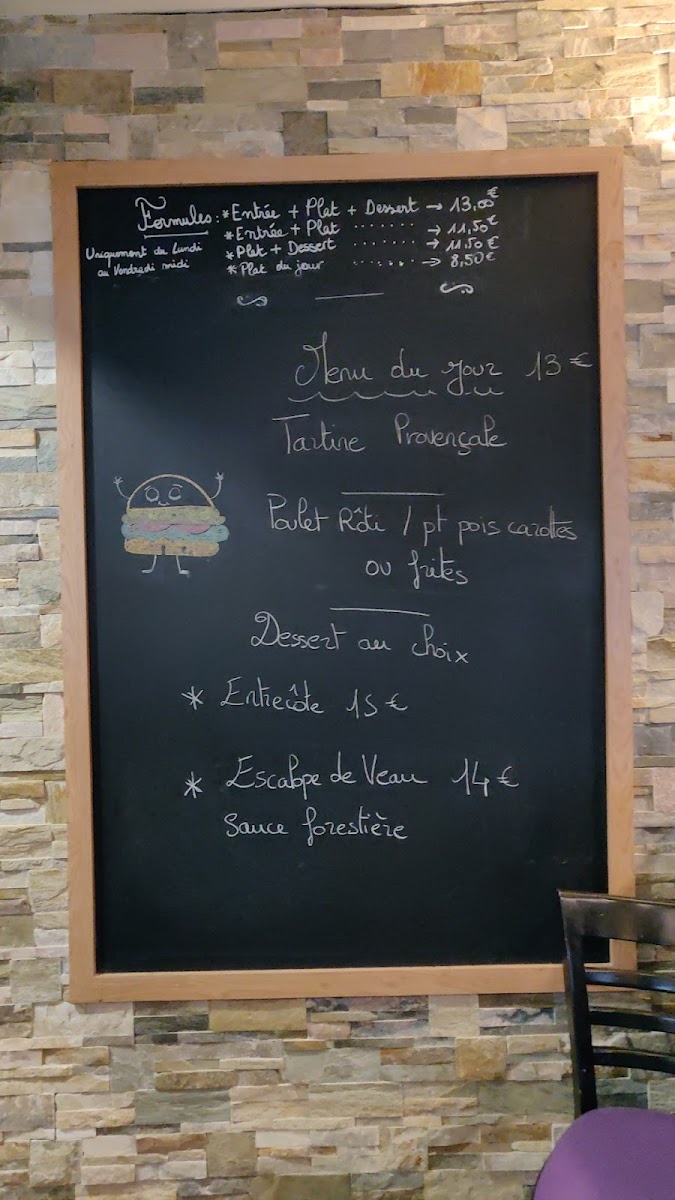 Formules : * Entrée + Plat + Dessert → 13,00€
* Entrée + Plat ....... → 11,50€
Uniquement du Lundi
au Vendredi midi
* Plat + Dessert ....... → 11,50€
* Plat du jour ....... → 8,50€
Menu du jour 13€
Tartine Provençale
Poulet Rôti / pt pois carottes
ou frites
Dessert au choix
* Entrecôte 15€
* Escalope de Veau 14€
Sauce forestière